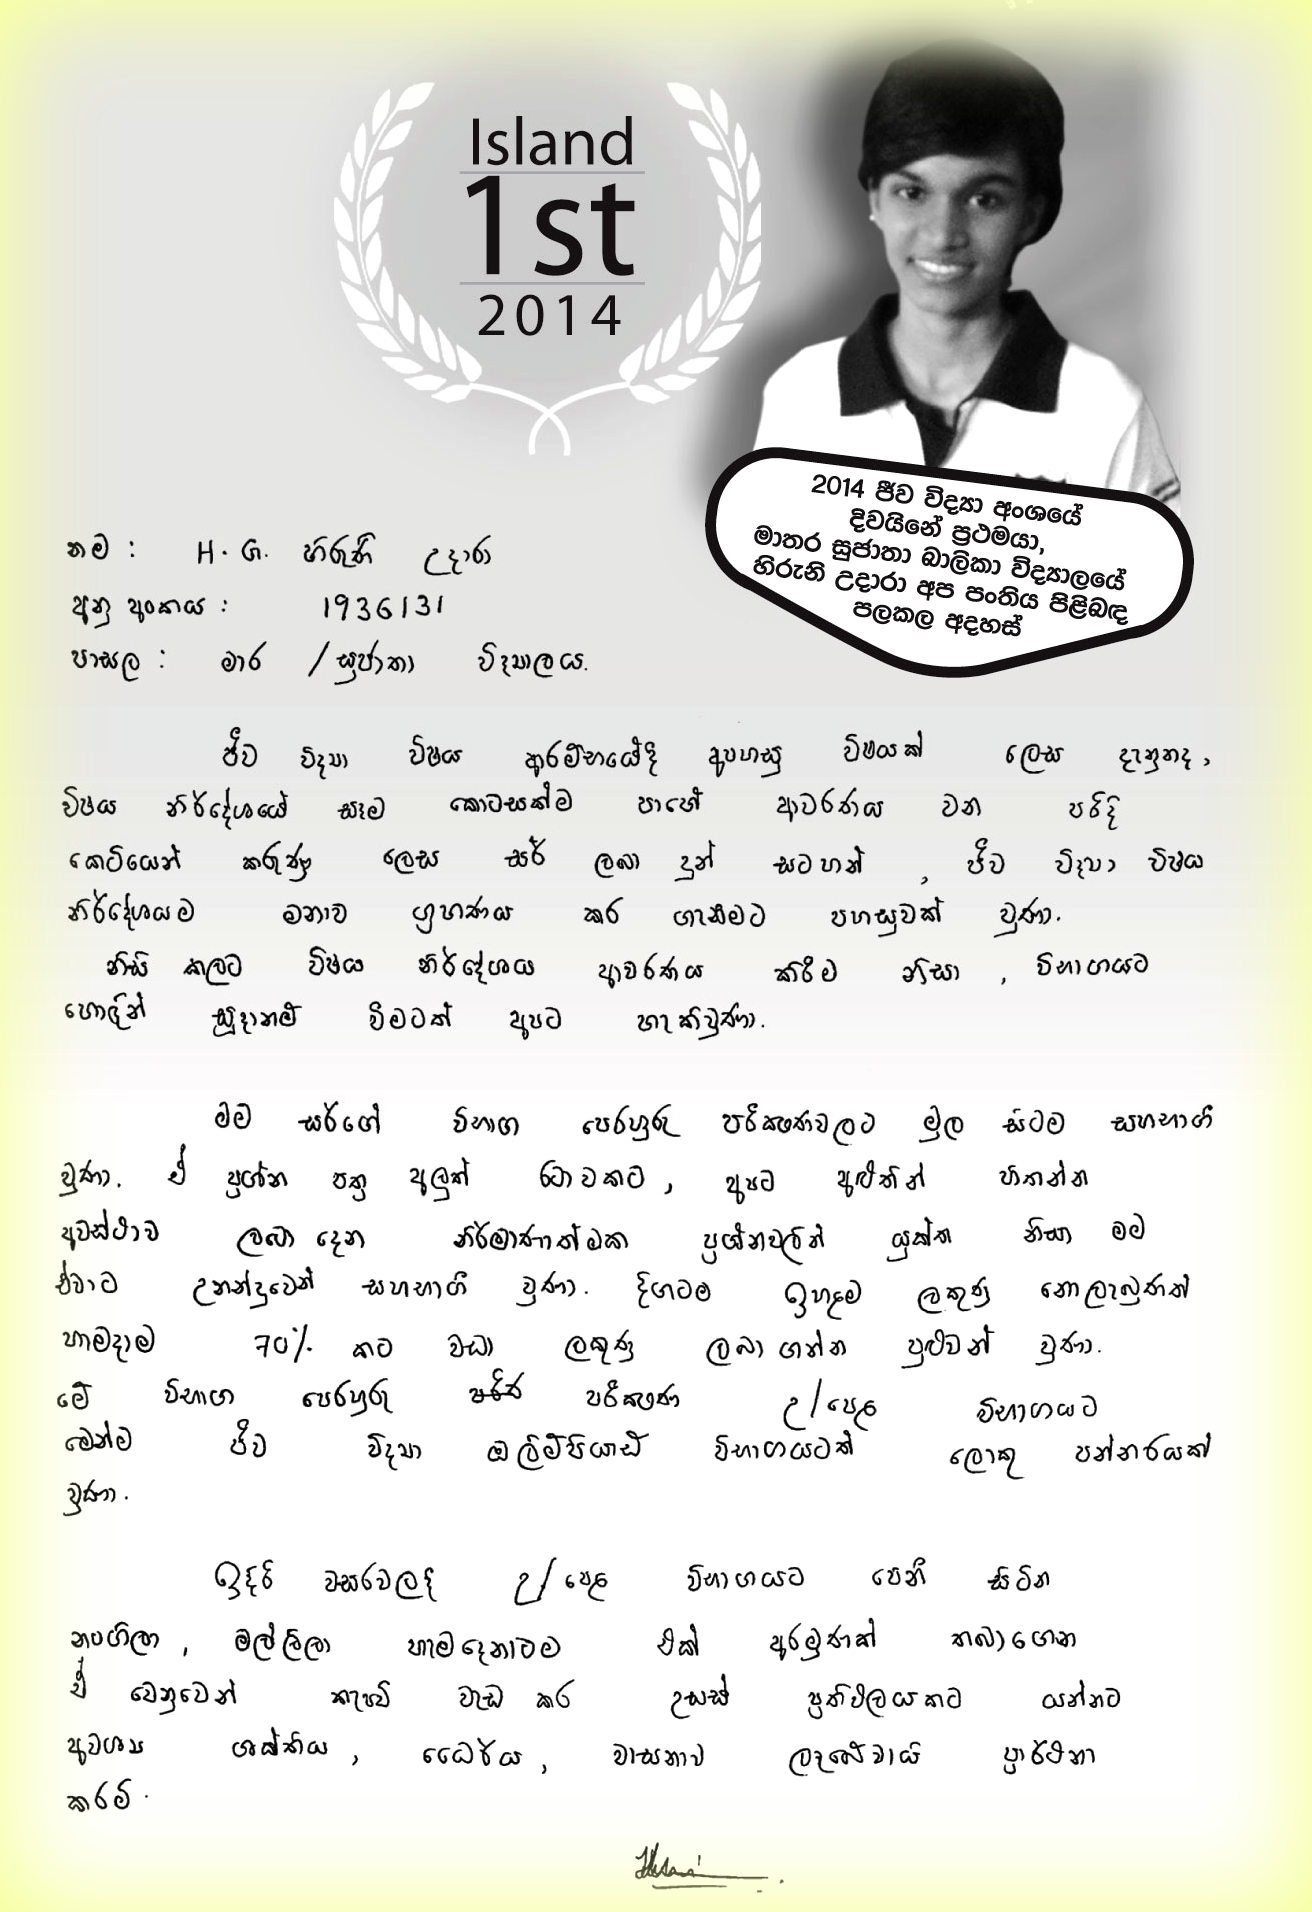 Island
1st
2014
2014 ජීව විද්‍යා අංශයේ
දිවයිනේ ප්‍රථමයා,
මාතර සුජාතා බාලිකා විද්‍යාලයේ
හිරුනි උදාරා අප පංතිය පිළිබඳ
පලකල අදහස්
නම : H. G. හිරුනි උදාරා
අනු අංකය : 1936131
පාසල : මාර / සුජාතා විද්‍යාලය.
ජීව විද්‍යා විෂය ආරම්භයේදී අපහසු විෂයක් ලෙස දැනුනද,
විෂය නිර්දේශයේ සෑම කොටසක්ම පාහේ ආවරණය වන පරිදි
කෙටියෙන් කරුණු ලෙස සර් ලබා දුන් සටහන් , ජීව විද්‍යා විෂය
නිර්දේශයම මනාව ග්‍රහණය කර ගැනීමට පහසුවක් වුණා.
නිසි කලට විෂය නිර්දේශය ආවරණය කිරීම නිසා , විභාගයට
හොඳින් සූදානම් වීමටත් අපට හැකිවුණා.
මම සර්ගේ විභාග පෙරහුරු පරීක්ෂණවලට මුල සිටම සහභාගී
වුණා. ඒ ප්‍රශ්න පත්‍ර අලුත් රටාවකට, අපට අළුතින් හිතන්න
අවස්ථාව ලබා දෙන නිර්මාණාත්මක ප්‍රශ්නවලින් යුක්ත නිසා මම
ඒවාට උනන්දුවෙන් සහභාගී වුණා. දිගටම ඉහළම ලකුණු නොලැබුණත්
හැමදාම 70% කට වඩා ලකුණු ලබා ගන්න පුළුවන් වුණා.
මේ විභාග පෙරහුරු පරීක්ෂණ උ/පෙළ විභාගයට
මෙන්ම ජීව විද්‍යා ඔලිම්පියාඩ් විභාගයටත් ලොකු පන්නරයක්
වුණා.
ඉදිරි වසරවලදී උ/පෙළ විභාගයට පෙනී සිටින
නංගිලා , මල්ලිලා හැමදෙනාටම එක් අරමුණක් තබාගෙන
ඒ වෙනුවෙන් කැපවී වැඩ කර උසස් ප්‍රතිඵලයකට යන්නට
අවශ්‍ය ශක්තිය , ධෛර්ය , වාසනාව ලැබේවායි ප්‍රාර්ථනා
කරමි.